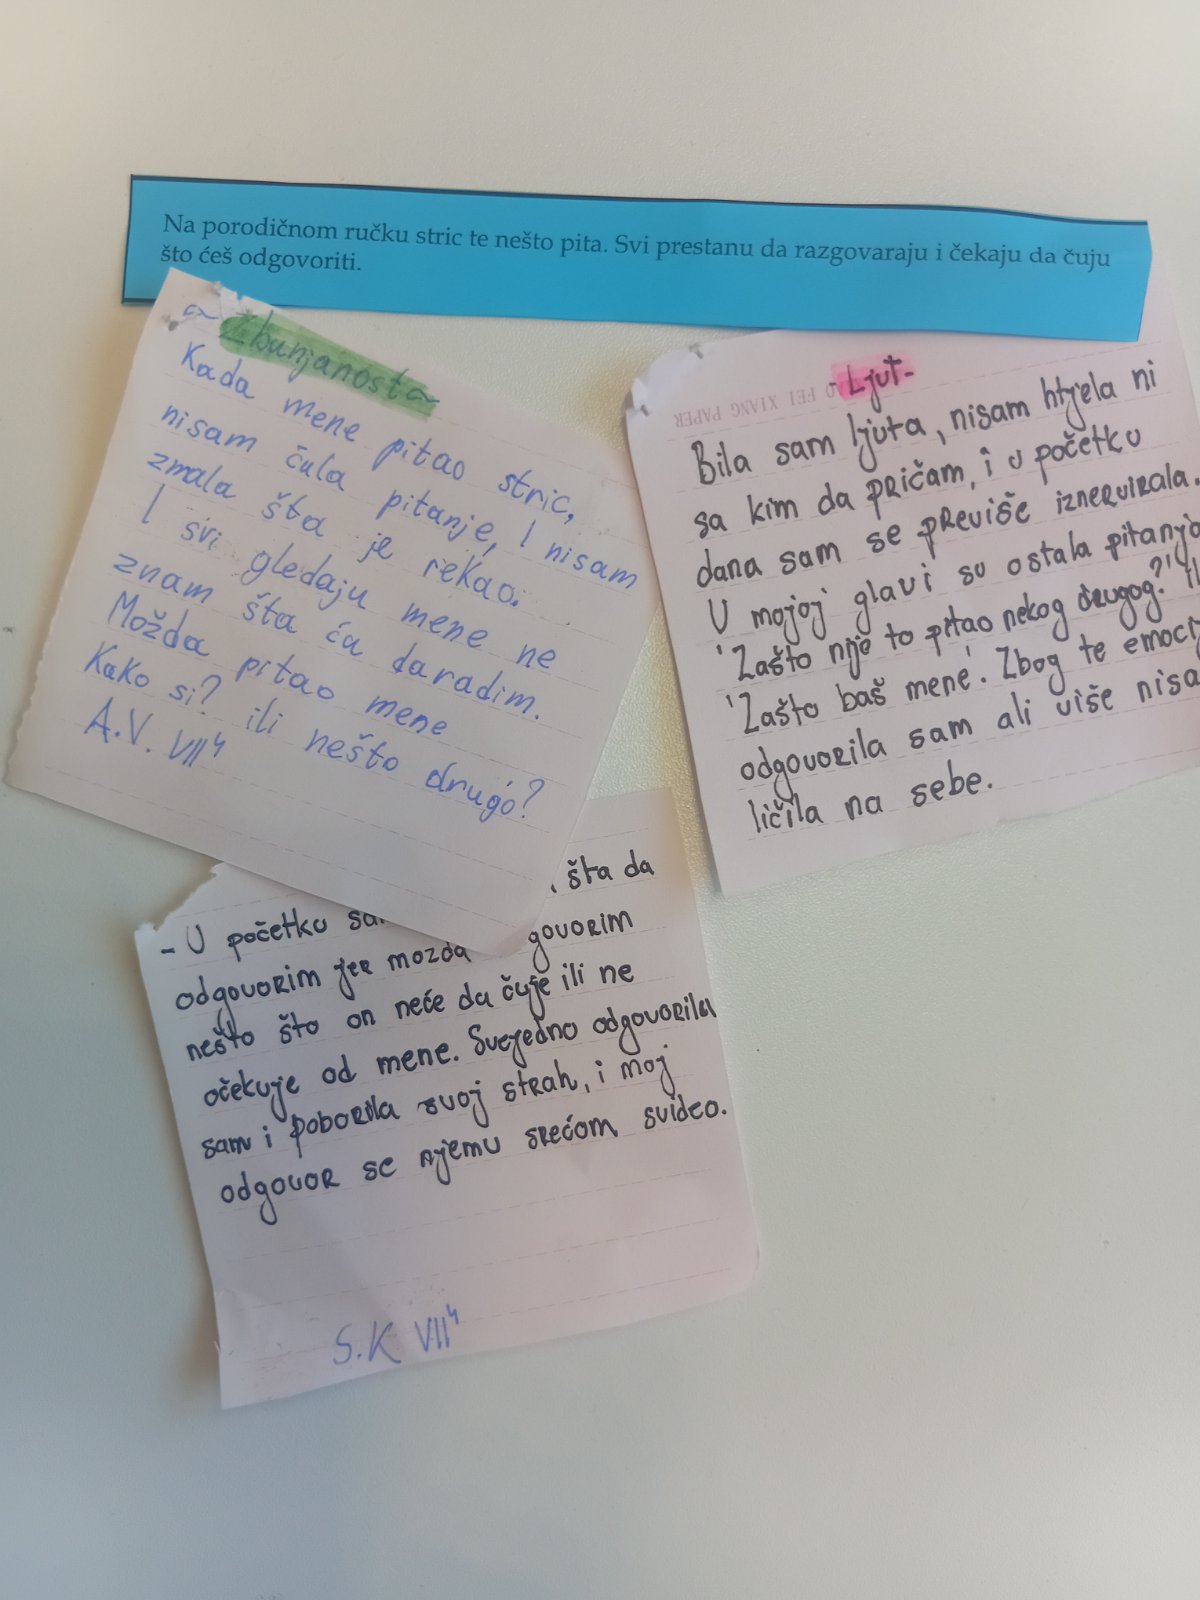 Na porodičnom ručku stric te nešto pita. Svi prestanu da razgovaraju i čekaju da čuju
što ćeš odgovoriti.
~Zbunjanosta~
Kada mene pitao stric,
nisam čula pitanje, I nisam
zmala šta je rekao.
I svi gledaju mene ne
znam šta ća daradim.
Možda pitao mene
Kako si? ili nešto drugo?
A.V. VII4
-Ljut-
FEI XIANG PAPER
Bila sam ljuta, nisam htjela ni
sa kim da pričam, i u početku
dana sam se previše iznervirala.
U mojoj glavi su ostala pitanja
'Zašto nije to pitao nekog drugog?'
'Zašto baš mene'. Zbog te
odgovorila sam ali više
ličila na sebe.
šta da
- U početku
odgovorim jer mozda govorim
nešto što on neće da čuje ili ne
očekuje od mene. Svejedno odgovorila
sam i poborila svoj strah, i moj
odgovor se njemu srećom svideo.
S.K VII4